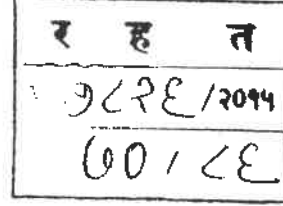 र ह त
७८२६/२०१५
७०/८६